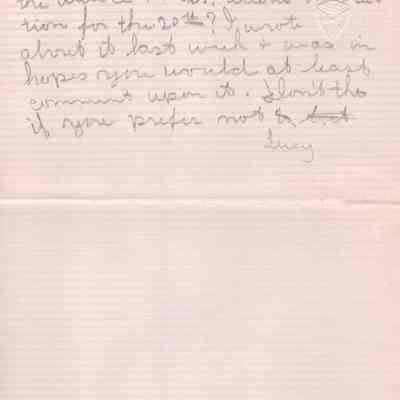 the
tion for the 20th? I wrote
about it last week & was in
hopes you would at least
comment upon it. Don't tho
if you prefer not to
Lucy